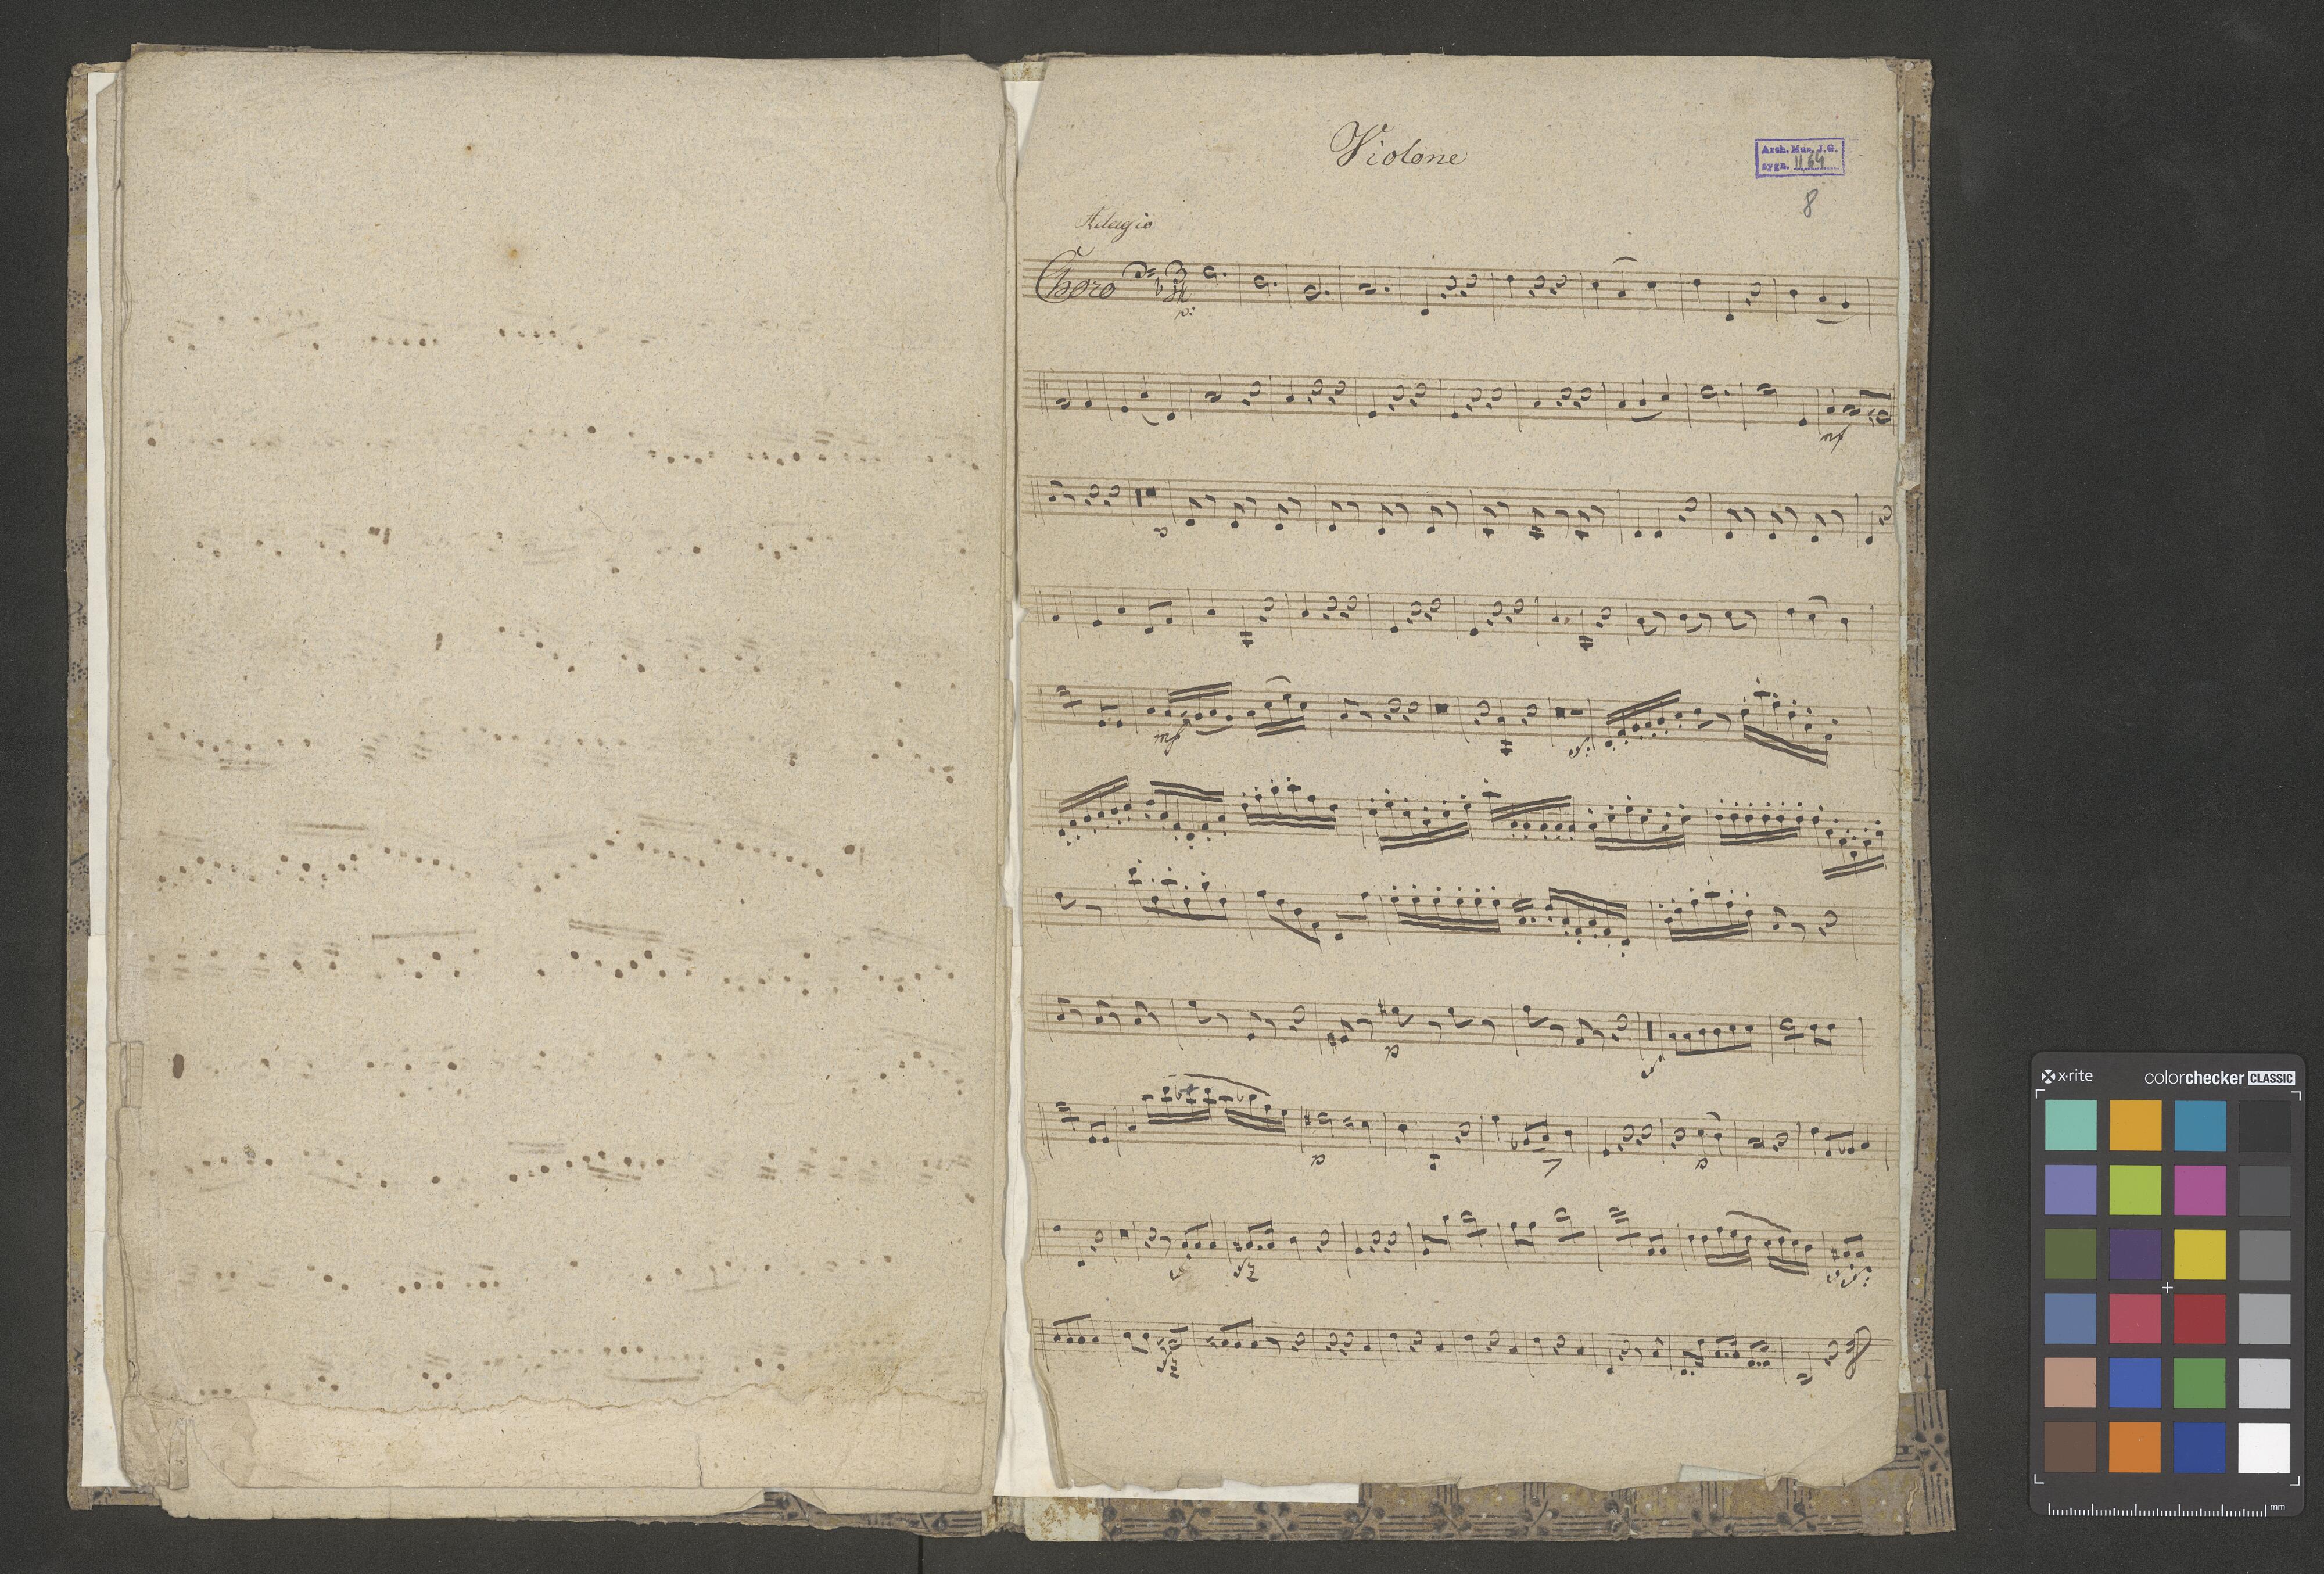 Violone
Arch. Mus. J.G.
sygn. II 64
8
Adagio
Choro
p:
mf
p
mf
p
p
p
x-rite
colorchecker CLASSIC
mm